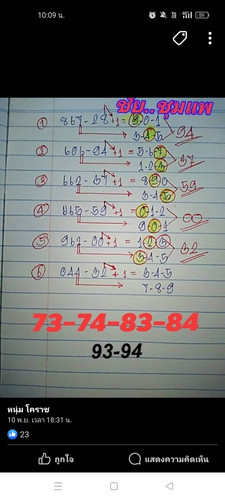 10:09 น.
ชัย..ชุมแพ
① 867-28+1=8-0-1
3-4-5 94
② 606-94+1=5-6-7
1-2-3 37
③ 662-37+1=8-9-0
3-4-5 59
④ 865-59+1=0-1-2
9-0-1 00
⑤ 962-00+1=1-2-3
3-4-5 32
⑥ 044-32+1=3-4-5
7-8-9
73-74-83-84
93-94
หนุ่ม โคราช
10 พ.ย. เวลา 18:31 น.
23
ถูกใจ
แสดงความคิดเห็น